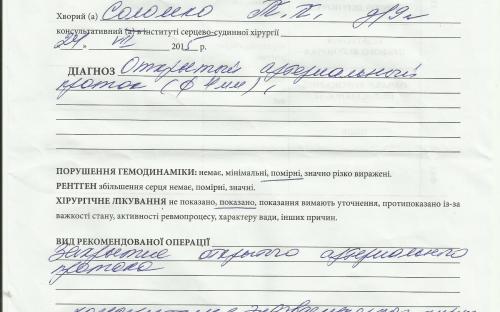 Хворий (а) Соломко Т.П.,
консультативний (а) в інституті серцево-судинної хірургії
"24" VII 2015 р.
ДІАГНОЗ Открытый артериальный
проток (ф 4мм),
ПОРУШЕННЯ ГЕМОДИНАМІКИ: немає, мінімальні, помірні, значно різко виражені.
РЕНТГЕН збільшення серця немає, помірні, значні.
ХІРУРГІЧНЕ ЛІКУВАННЯ не показано, показано, показання вимають уточнення, протипоказано із-за
важкості стану, активності ревмопроцесу, характеру вади, інших причин.
ВИД РЕКОМЕНДОВАНОЇ ОПЕРАЦІЇ
Закрытие открытого артериального
протока